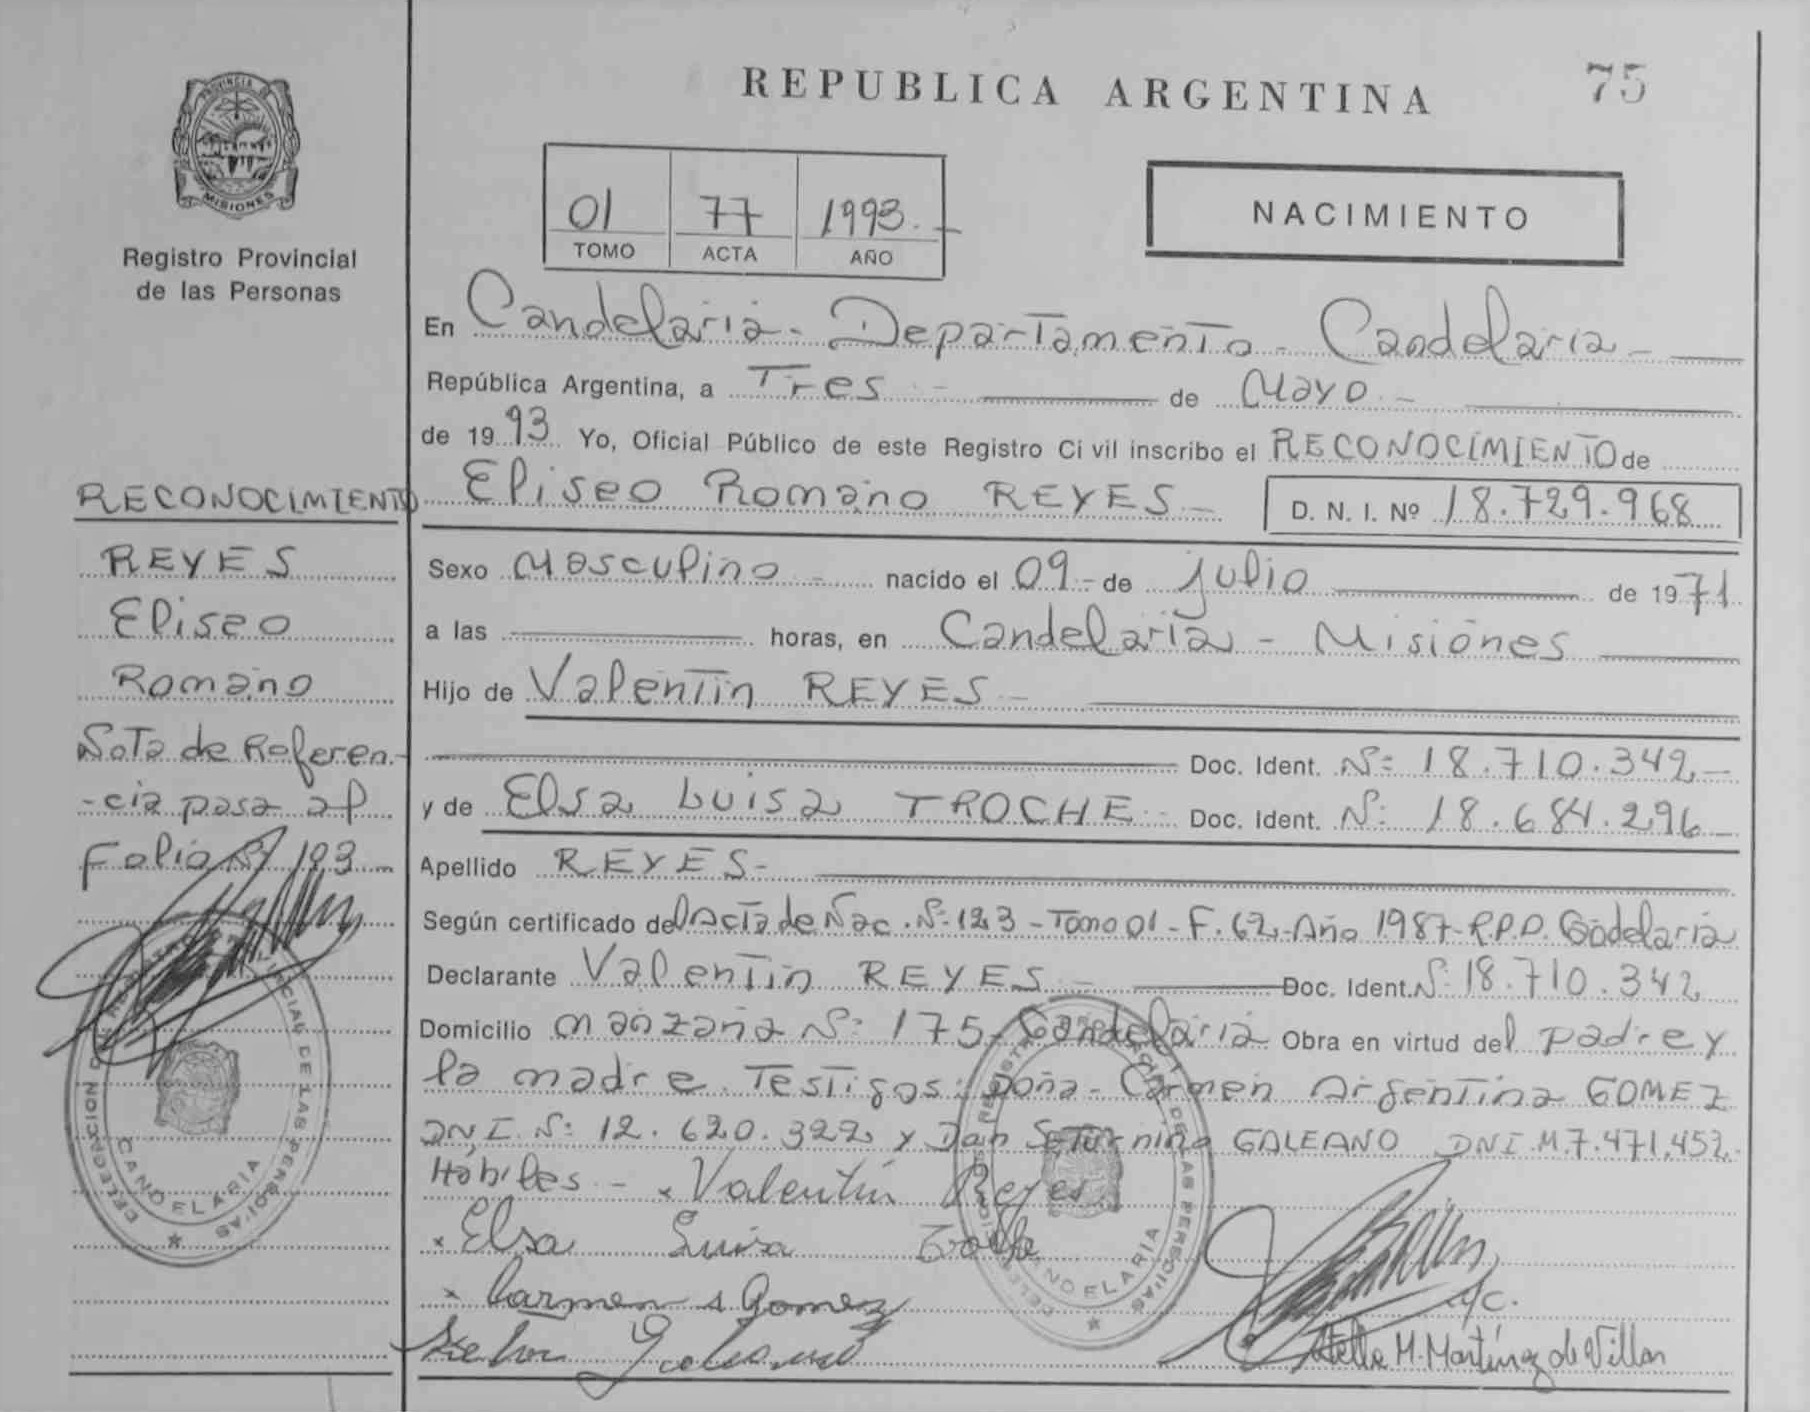 REPUBLICA ARGENTINA
75
PROVINCIA DE
MISIONES
Registro Provincial
de las Personas
01 77 1993.-
TOMO ACTA AÑO
NACIMIENTO
En Candelaria - Departamento - Candelaria -
República Argentina, a Tres - de Mayo -
de 1993 Yo, Oficial Público de este Registro Civil inscribo el RECONOCIMIENTO de
Eliseo Romano REYES - D. N. I. Nº 18.729.968
Sexo Masculino - nacido el 09 - de Julio de 1971
a las horas, en Candelaria - Misiones
Hijo de Valentin REYES -
Doc. Ident. Nº 18.710.342 -
y de Elsa Luisa TROCHE - Doc. Ident. Nº 18.684.296 -
Apellido REYES -
Según certificado del Acta de Nac. Nº 123 - Tomo 01 - F. 62 - Año 1987 - R.P.P. Candelaria
Declarante Valentin REYES - Doc. Ident. Nº 18.710.342
Domicilio manzana Nº 175 - Candelaria Obra en virtud del padre y
la madre. Testigos: Doña - Carmen Argentina GOMEZ
DNI. Nº 12.620.322 y Don Saturnino GALEANO DNI.M.7.471.452
Hábiles - x Valentín Reyes
x Elsa Luisa
x Carmen A Gomez
Stella M. Martínez de Villar
RECONOCIMIENTO
REYES
Eliseo
Romano
Nota de Referen-
-cia pasa al
Folio Nº 193
DELEGACION DEL REGISTRO PROVINCIAL DE LAS PERSONAS
CANDELARIA
DELEGACION DEL REGISTRO PROVINCIAL DE LAS PERSONAS
CANDELARIA